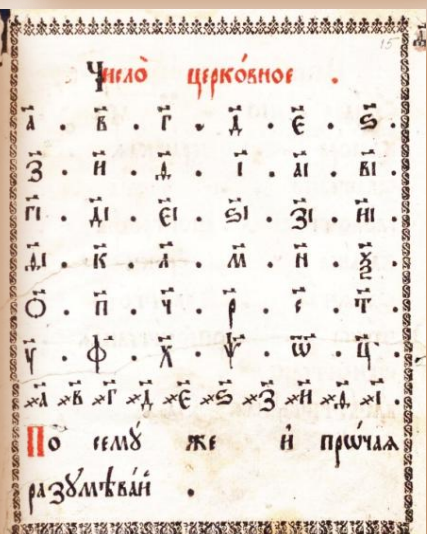 15
Число̀ церко́вное .
а҃ . в҃ . г҃ . д҃ . є҃ . ѕ҃ .
з҃ . и҃ . ѳ҃ . і҃ . а҃і . в҃і .
г҃і . д҃і . є҃і . ѕ҃і . з҃і . и҃і .
ѳ҃і . к҃ . л҃ . м҃ . н҃ . ѯ҃
о҃ . п҃ . ч҃ . р҃ . с҃ . т҃ .
у҃ . ф҃ . х҃ . ѱ҃ . ѿ҃ . ц҃ .
҂а҃ ҂в҃ ҂г҃ ҂д҃ ҂є҃ ҂ѕ҃ ҂з҃ ҂и҃ ҂ѳ҃ ҂і҃ .
По семꙋ̀ же и҆ прѡ́чаѧ
разꙋмѣва́й .